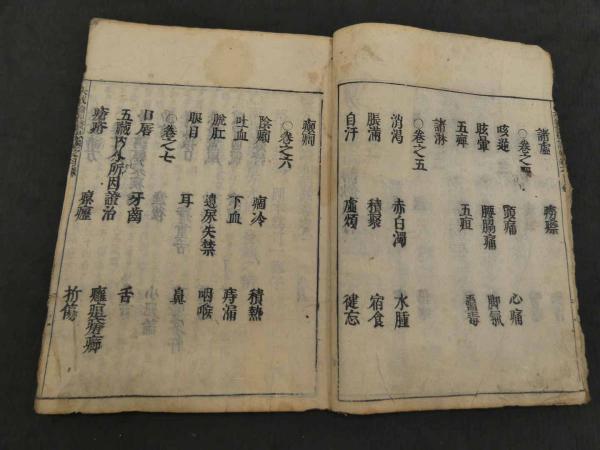 諸虛 癆瘵
○卷之四
咳逆 頭痛 心痛
眩暈 腰脇痛 脚氣
五痺 五疸 蠱毒
諸淋
○卷之五
消渴 赤白濁 水腫
脹滿 積聚 宿食
自汗 虛煩 健忘
癲癇
○卷之六
陰㿗 痼冷 積熱
吐血 下血 痔漏
脫肛 遺尿失禁 咽喉
眼目 耳 鼻
○卷之七
口唇 牙齒 舌
五臟內外所因證治
瘰癧 折傷